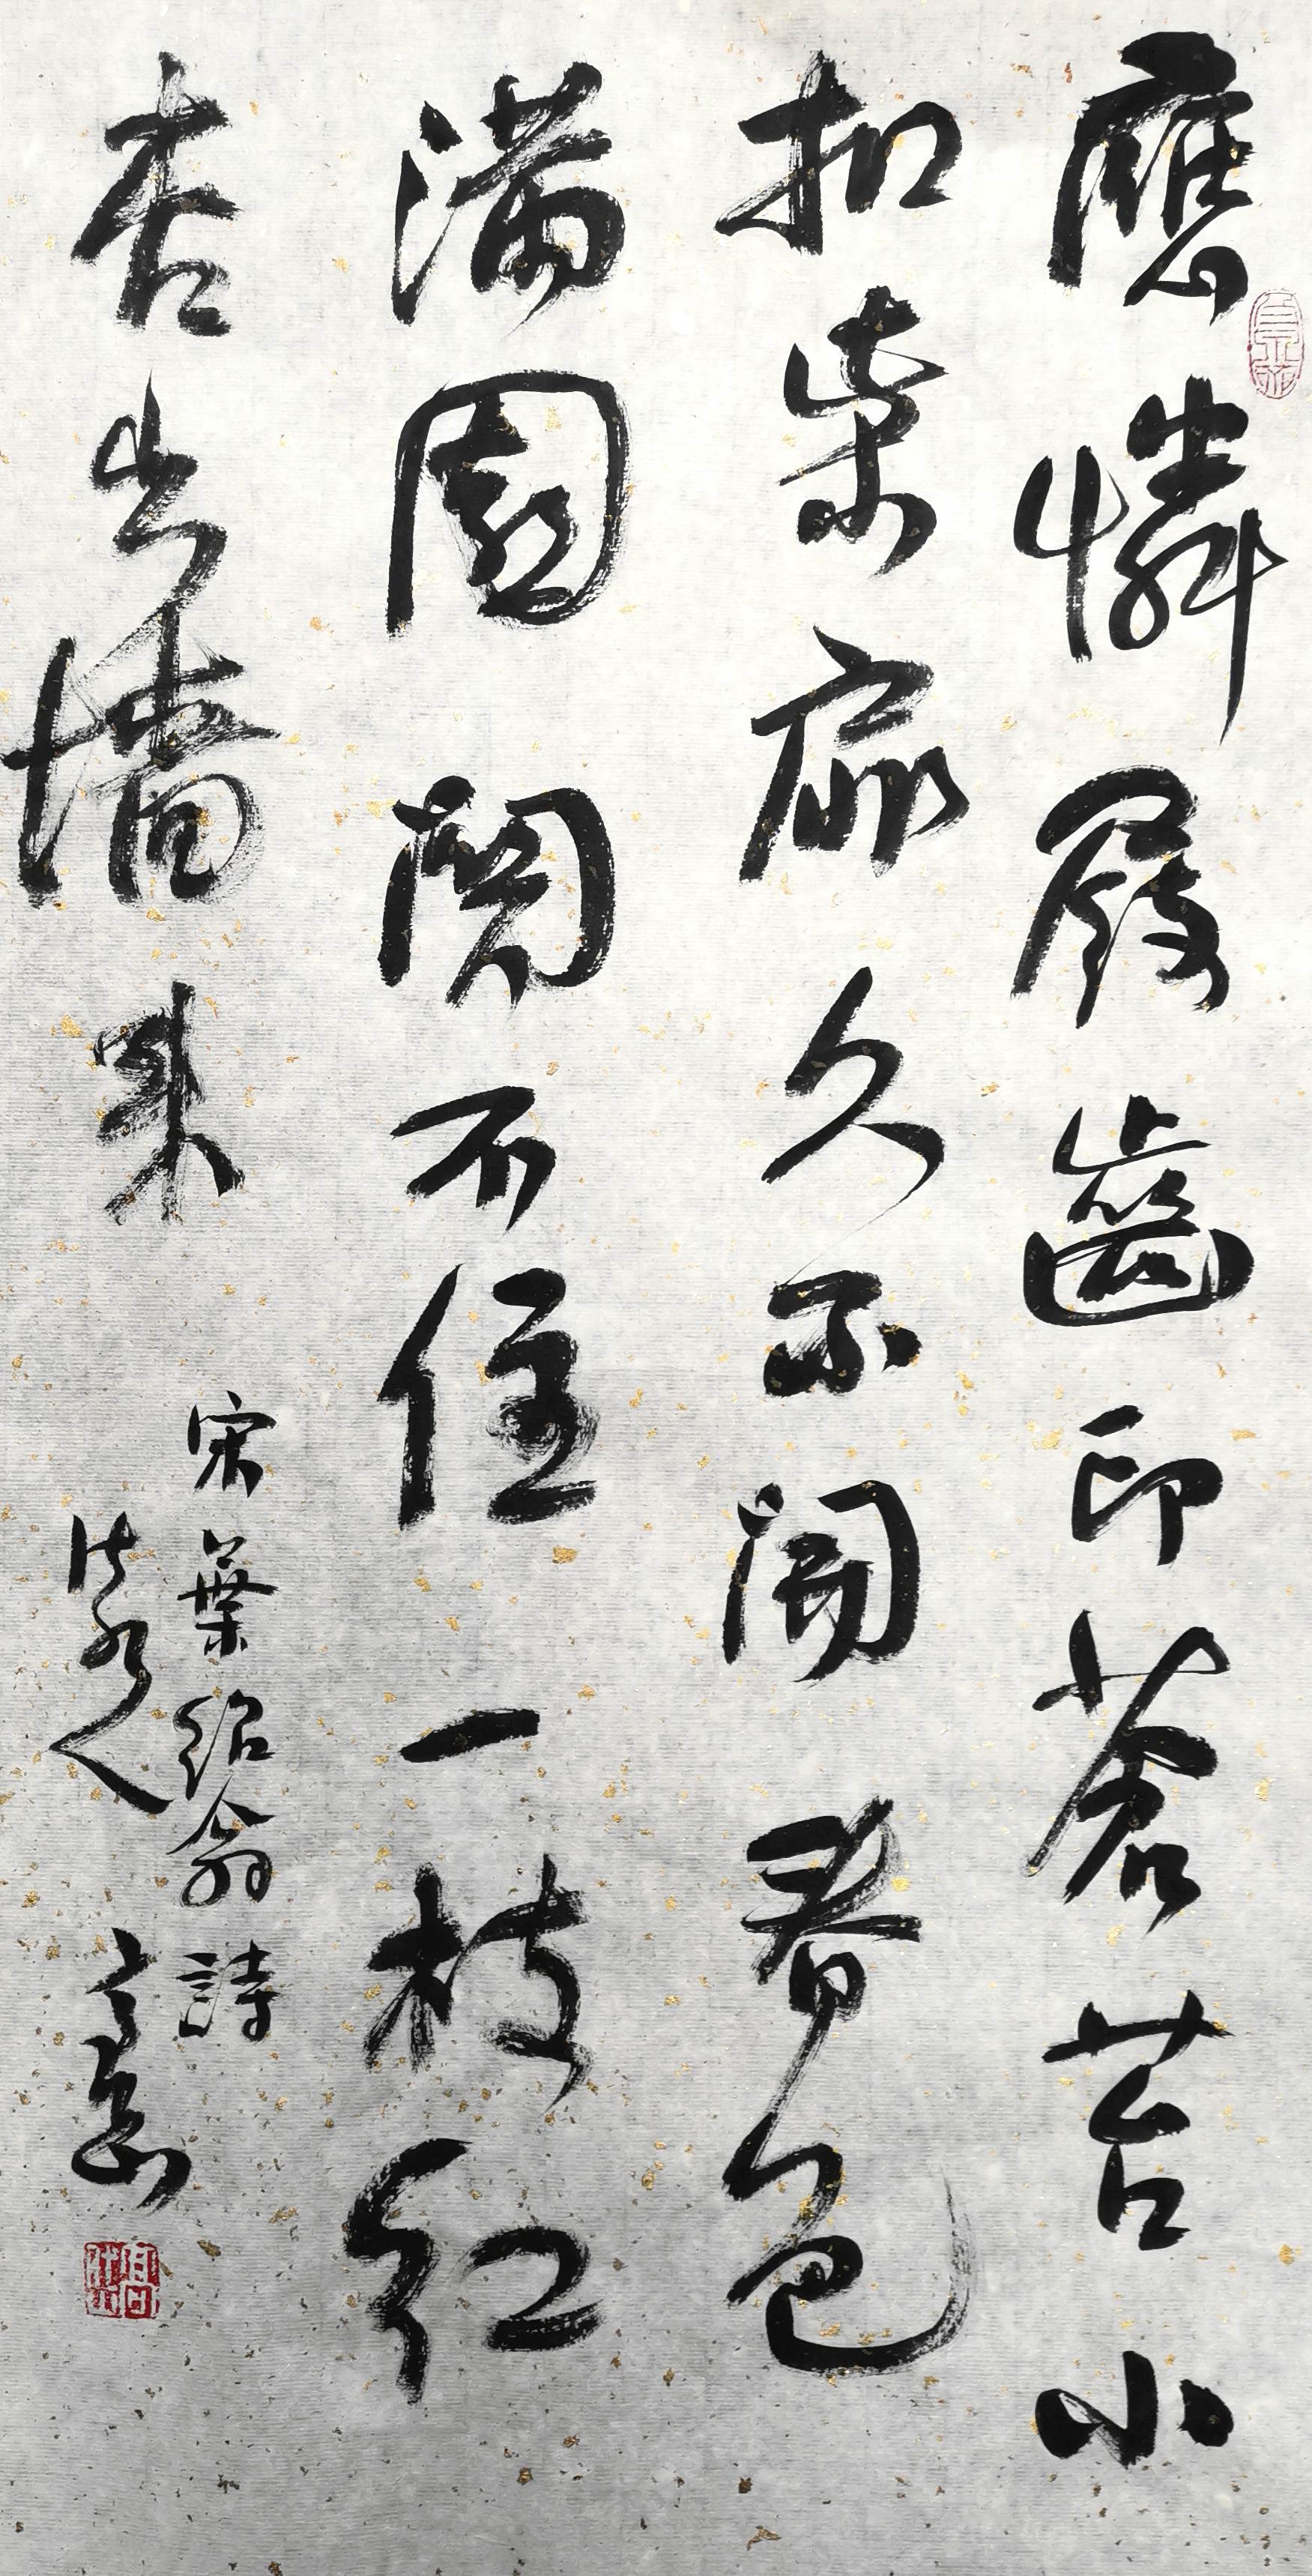 應憐屐齒印蒼苔小
扣柴扉久不開春色
滿園關不住一枝紅
杏出墻來
宋葉紹翁詩